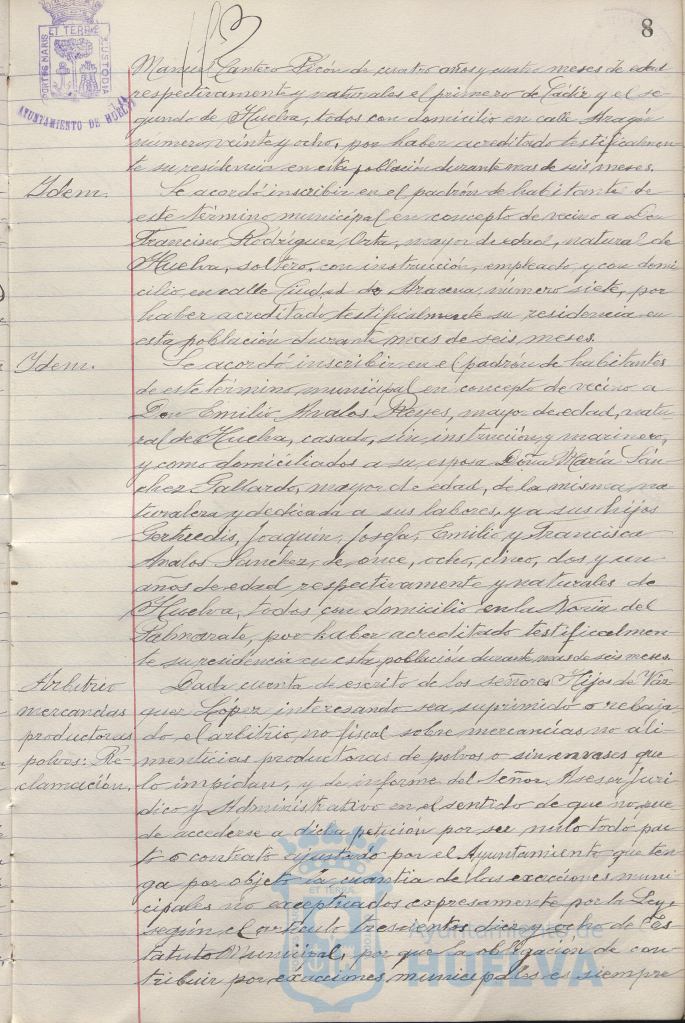 8
PORTUS MARIS ET TERRÆ CUSTODIA
AYUNTAMIENTO DE HUELVA
Manuel Cantero Picón de cuatro años y cuatro meses de edad
respectivamente y naturales el primero de Cádiz y el se-
gundo de Huelva, todos con domicilio en calle Aragón
número veinte y ocho, por haber acreditado testificalmen-
te su residencia en esta población durante mas de seis meses.
Idem.
Se acordó inscribir en el padrón de habitante de
este término municipal en concepto de vecino a Don
Francisco Rodríguez Orta, mayor de edad, natural de
Huelva, soltero, con instrucción, empleado y con domi-
cilio en calle Ciudad de Aracena, número siete, por
haber acreditado testificalmente su residencia en
esta población durante mas de seis meses.
Idem.
Se acordó inscribir en el padrón de habitantes
de este término municipal en concepto de vecino a
Don Emilio Analos Reyes, mayor de edad, natu-
ral de Huelva, casado, sin instrucción y marinero,
y como domiciliados a su esposa Doña María Sán-
chez Gallardo, mayor de edad, de la misma na-
turaleza y dedicada a sus labores, y a sus hijos
Gertrudis, Joaquín, Josefa, Emilio y Francisca
Analos Sanchez, de once, ocho, cinco, dos y un
años de edad respectivamente y naturales de
Huelva, todos con domicilio en la Noria del
por haber acreditado testificalmen-
te su residencia en esta población durante mas de seis meses.
Arbitrio
mercancías
productoras
polvos: Re-
clamación.
Dada cuenta de escrito de los señores Hijos de Váz-
quez López interesando sea suprimido o rebaja-
do el arbitrio no fiscal sobre mercancías no ali-
menticias productoras de polvos o sin envases que
lo impidan, y de informe del Señor Asesor Jurí-
dico y Administrativo en el sentido de que no pue-
de accederse a dicha petición por ser nulo todo pac-
to o contrato ajustado por el Ayuntamiento que ten-
ga por objeto la cuantía de las exacciones muni-
cipales no exceptuados expresamente por la Ley,
según el artículo trescientos diez y ocho de Es-
tatuto Municipal, por que la obligación de con-
tribuir por exacciones municipales es siempre
Ayuntamiento de
HUELVA